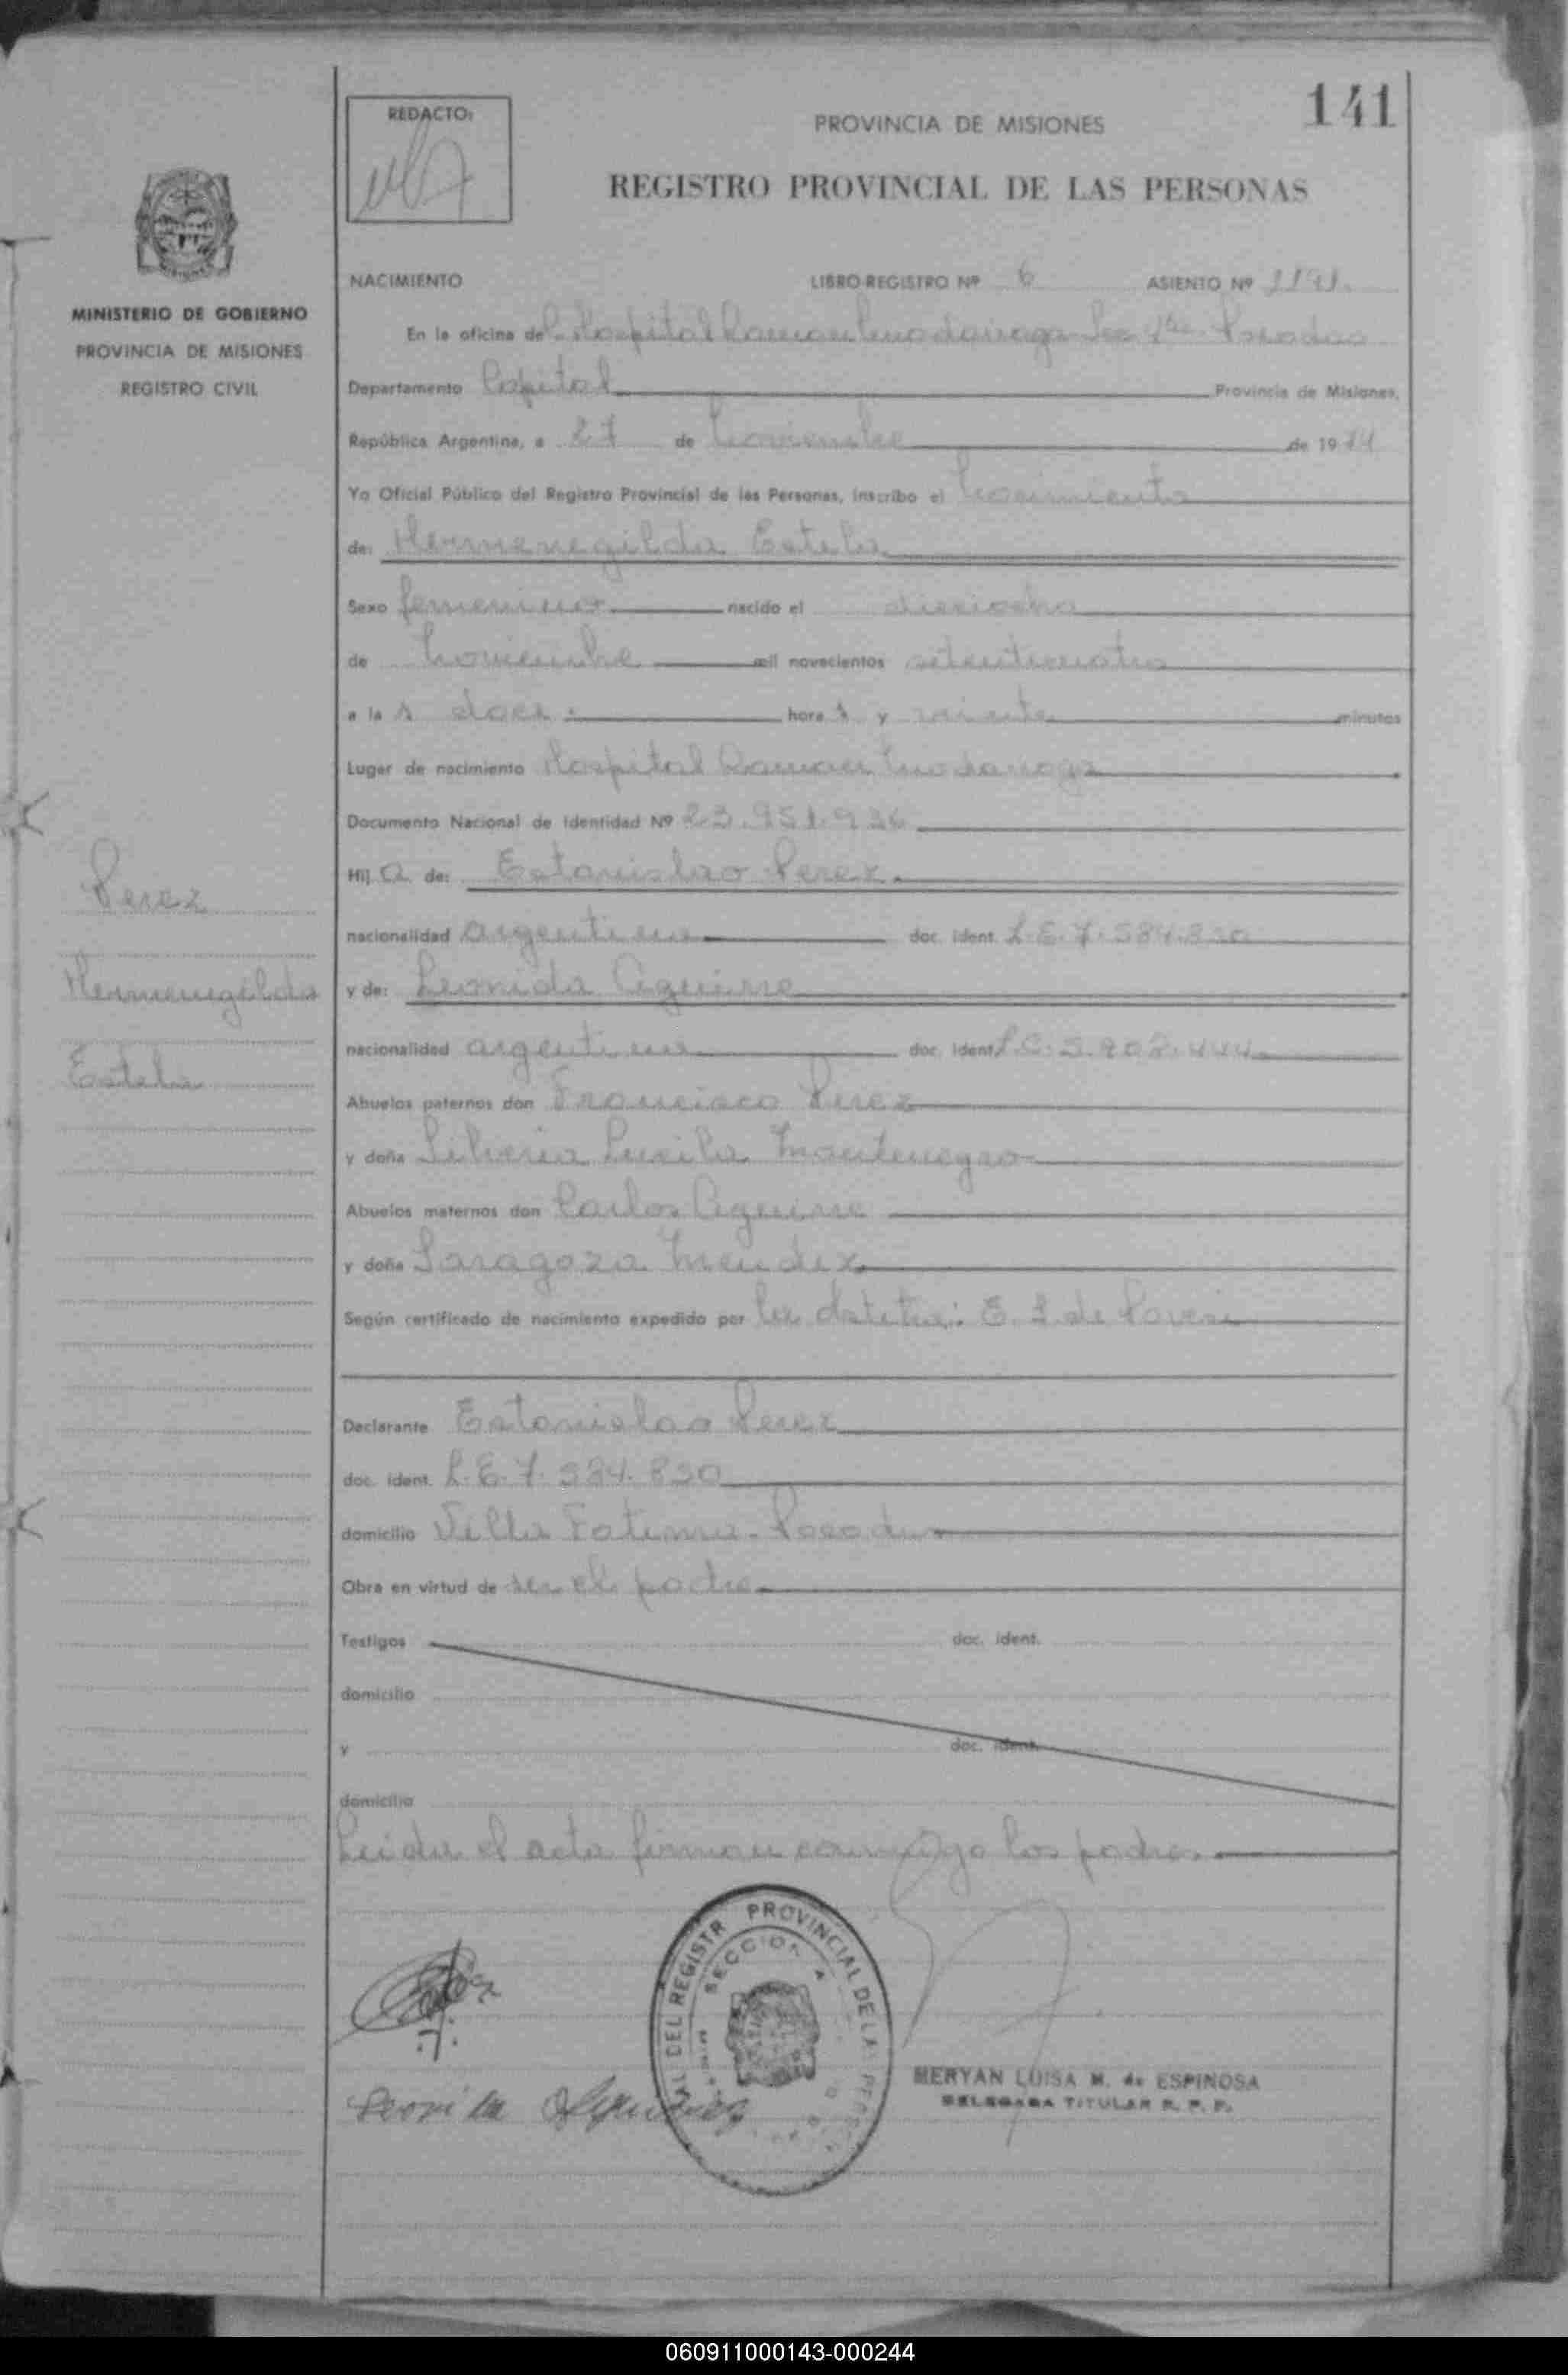 141
REDACTO:
PROVINCIA DE MISIONES
REGISTRO PROVINCIAL DE LAS PERSONAS
MINISTERIO DE GOBIERNO
PROVINCIA DE MISIONES
REGISTRO CIVIL
NACIMIENTO LIBRO-REGISTRO Nº 6 ASIENTO Nº
En la oficina del Hospital Ramon Madariaga Posadas
Departamento Capital Provincia de Misiones,
República Argentina, a 27 de Noviembre de 1974
Yo Oficial Público del Registro Provincial de las Personas, inscribo el Nacimiento
de: Hermenegilda Estela
Sexo femenino nacido el dieciocho
de Noviembre mil novecientos setenticuatro
a las doce hora s y veinte minutos
Lugar de nacimiento Hospital Ramon Madariaga
Documento Nacional de Identidad Nº 23.951.936
Hij a de: Estanislao Perez
nacionalidad argentina doc. ident. L.E. 7.584.830
y de: Leonida Aguirre
nacionalidad argentina doc. ident. L.C. 5.902.444
Abuelos paternos don Francisco Perez
y doña Silveria Lucila Montenegro
Abuelos maternos don Carlos Aguirre
y doña Saragoza Mendez
Según certificado de nacimiento expedido por la obstetra: E. de
Declarante Estanislao Perez
doc. ident. L.E. 7.584.830
domicilio Villa Fatima - Posadas
Obra en virtud de ser el padre
Testigos doc. ident.
domicilio
y doc. ident.
domicilio
Leida el acta firman conmigo los padres
Perez
Hermenegilda
Estela
DEL REGISTR PROVINCIAL DE LA
SECCION
MERYAN LUISA M. de ESPINOSA
DELEGADA TITULAR R. P. P.
060911000143-000244